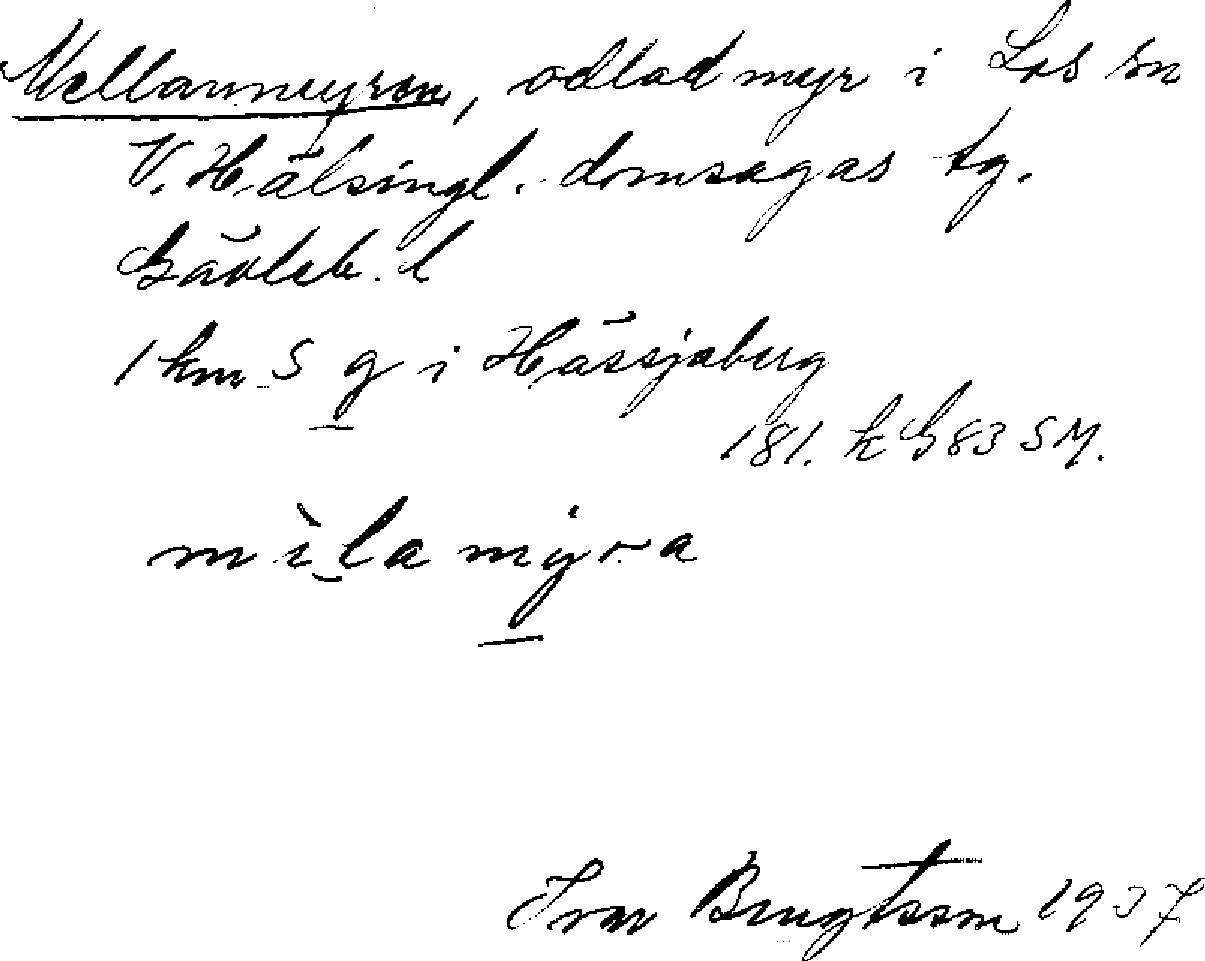 Mellanmyran, odlad myr i Los sn
V. Hälsingl. domsagas tg.
Gävleb. l
1 km S g i Hässjaberg
181. k G 83 SM.
mìla mýra
Ivar Bengtsson 1937